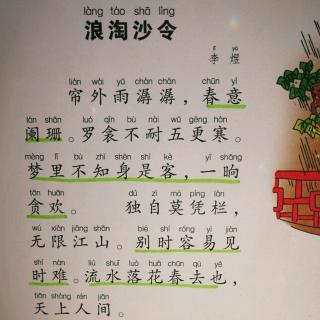 làng táo shā lìng
浪淘沙令
lǐ yù
李煜
lián wài yǔ chán chán chūn yì
帘外雨潺潺，春意
lán shān luó qīn bù nài wǔ gēng hán
阑珊。罗衾不耐五更寒。
mèng lǐ bù zhī shēn shì kè yì shǎng
梦里不知身是客，一晌
tān huān dú zì mò píng lán
贪欢。 独自莫凭栏，
wú xiàn jiāng shān bié shí róng yì jiàn
无限江山。别时容易见
shí nán liú shuǐ luò huā chūn qù yě
时难。流水落花春去也，
tiān shàng rén jiān
天上人间。